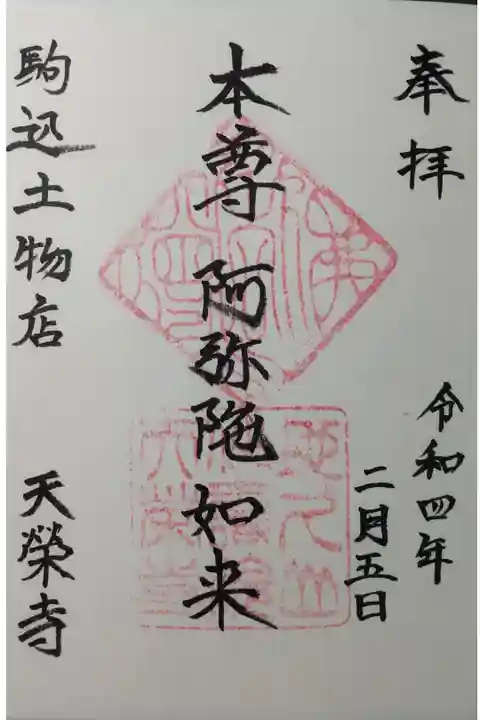 奉拝
令和四年
二月五日
本尊 阿弥陀如来
駒込土物店 天榮寺